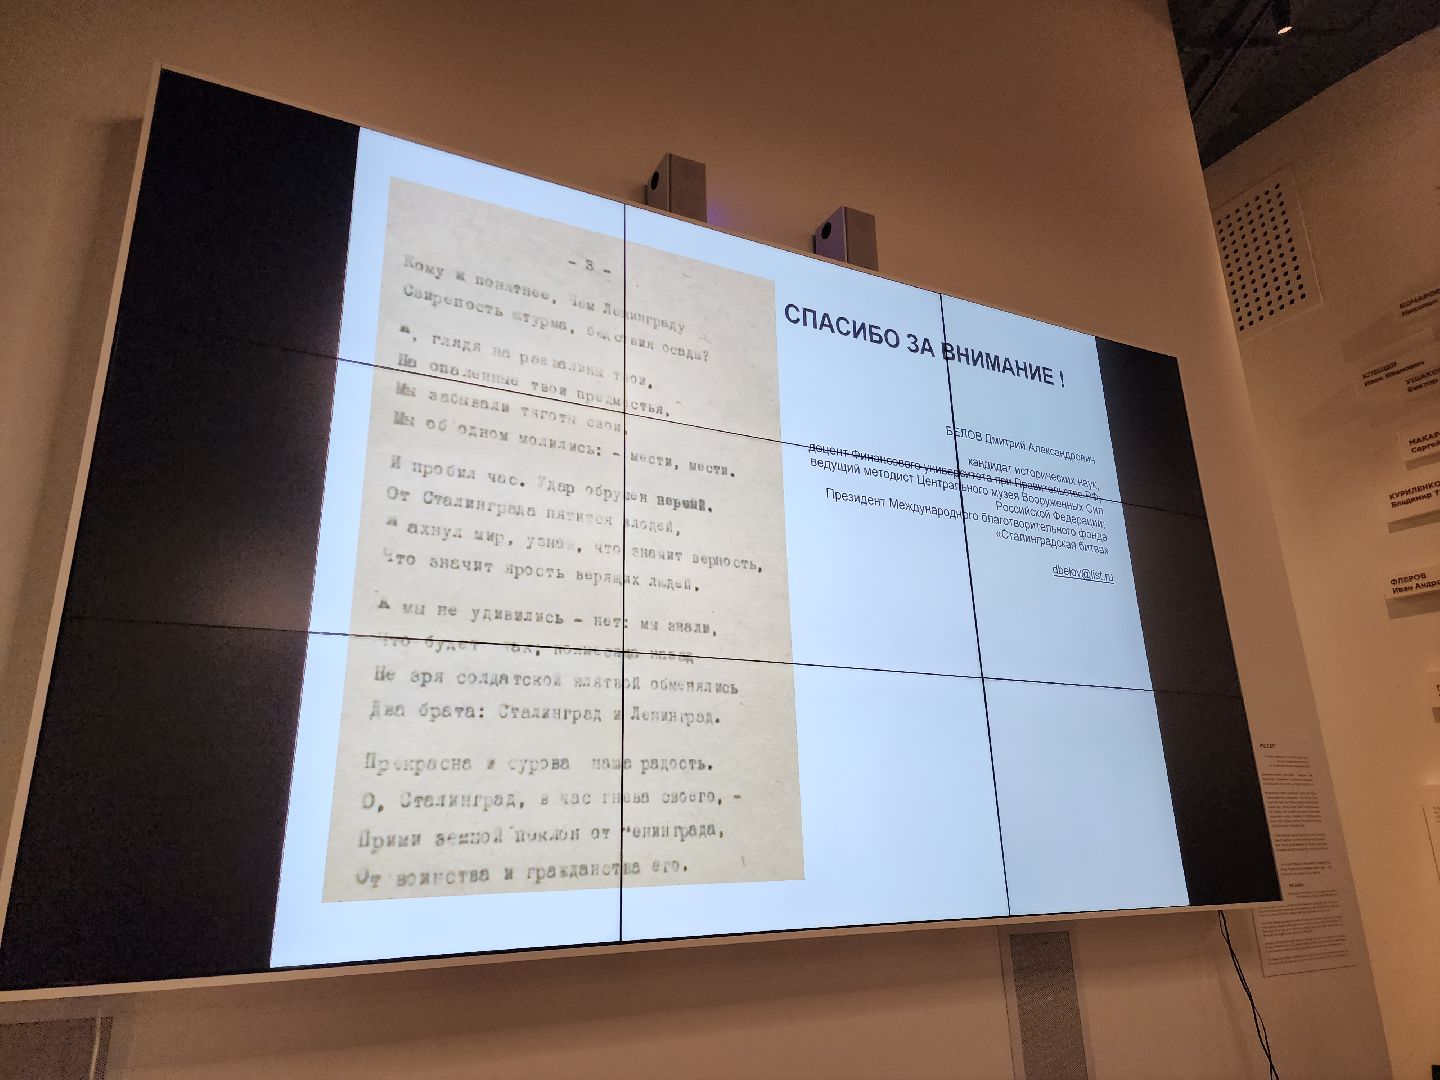 - 3 -
Кому ж понятнее, чем Ленинграду
Свирепость штурма, бедствия осады?
И, глядя на развалины твои,
На опаленные твои предместья,
Мы забывали тяготы свои,
Мы об'одном молились: - мести, мести.
И пробил час. Удар обрушен первый.
От Сталинграда пятится злодей,
И ахнул мир, узнав, что значит верность,
Что значит ярость верящих людей.
А мы не удивились - нет: мы знали,
Что будет так;
Не зря солдатской клятвой обменялись
Два брата: Сталинград и Ленинград.
Прекрасна и сурова наша радость.
О, Сталинград, в час гнева своего, -
Прими земной поклон от Ленинграда,
От воинства и гражданства его.
СПАСИБО ЗА ВНИМАНИЕ !
БЕЛОВ Дмитрий Александрович
кандидат исторических наук,
доцент Финансового университета при Правительстве РФ,
ведущий методист Центрального музея Вооруженных Сил
Российской Федерации;
Президент Международного благотворительного фонда
«Сталинградская битва»
dbelov@list.ru
БОЧАРОВ
Николай
КЛЕЩЕВ
Иван Иванович
УШАКО
Виктор
МАКАР
Сергей
КУРИЛЕНКО
Владимир Т
ФЛЕРОВ
Иван Андре